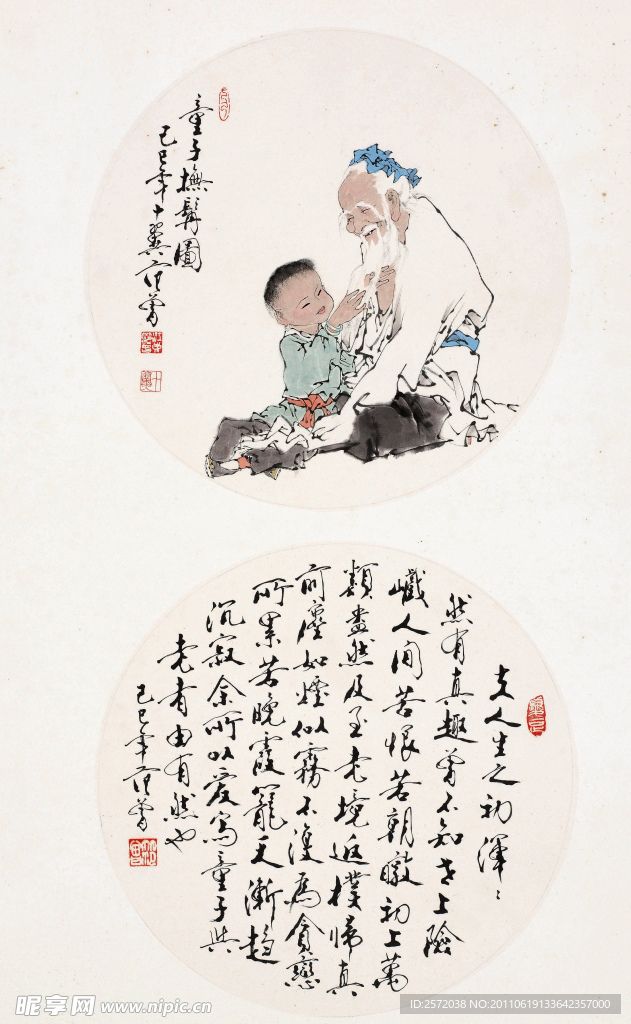 童子撫髯圖
己巳年十翼范曾
夫人生之初渾〻
然有真趣曾不知世上險
巇人間苦恨若朝暾初上萬
類盎然及至老境返樸帰真
前塵如煙似霧不復為貪戀
所累若晚霞籠天漸趨
沉寂余所以爱寫童子與
老者由有然也
己巳年范曾
昵享网 www.nipic.cn
ID:2572038 NO:20110619133642357000